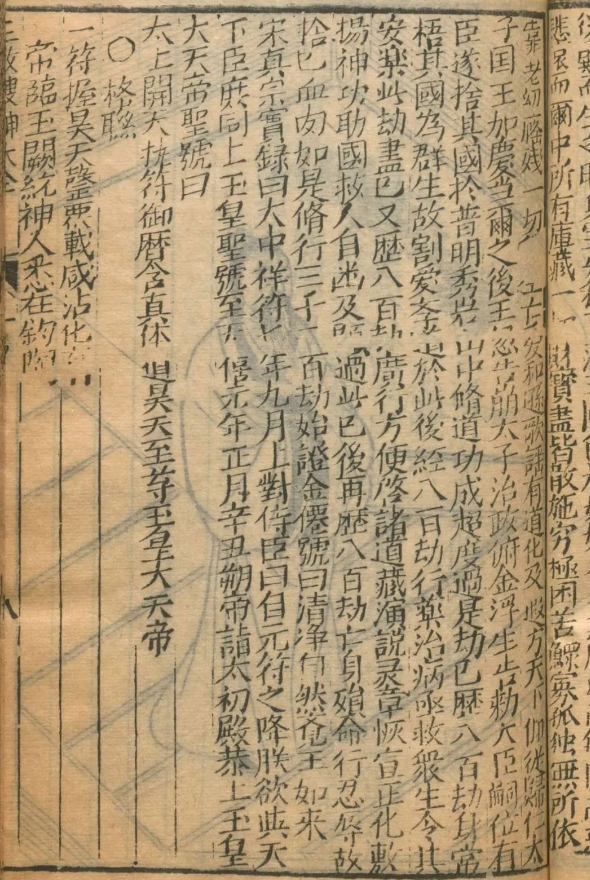 悲 而爾中所有庫藏一 財寶盡皆散施穷極困苦鰥寡孤独無所依
靠老幼殘 一切 和遜歌謡有道化及遐方天下仰從歸仁太
子囯王加慶 爾之後王 告崩太子治政俯金浮生告勅大臣嗣位有
臣遂捨其國於普明秀岩山中脩道功成超度過是劫已歷八百劫身常
捂其國為群生故割愛 於此後經八百劫行藥治病亟救衆生令其
安樂此劫盡已又歷八百劫廣行方便啓諸道藏演說灵章恢宣正化敷
揚神功助國救人自幽及 過此已後再歷八百劫亡身殞命行忍辱故
捨已血肉如是脩行三千二百劫始證金僊號曰清净自然覺王如来
宋真宗實録曰大中祥符 年九月上對侍臣曰自元符之降朕欲與天
下臣庶同上玉皇聖號至天僖元年正月辛丑朔帝詣太初殿恭上玉皇
大天帝聖號曰
太上開天执符御曆含真体道昊天至尊玉皇大天帝
○格聯
一符握昊天 載咸沾化
帝臨玉闕統神人悉在鈞
搜神大全